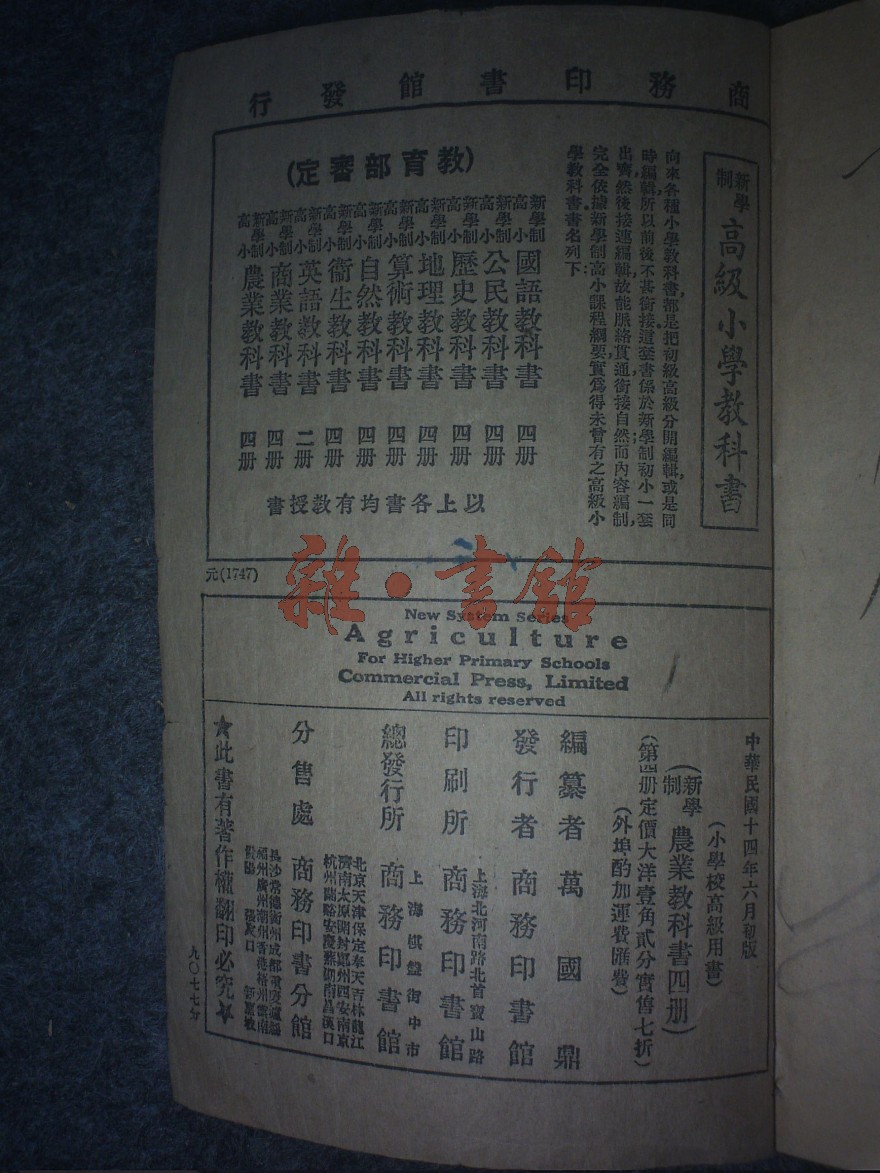 商務印書館發行
新學制高級小學教科書
向來各種小學教科書,都是把初級高級分開編輯,或是同
時編輯,所以前後不甚銜接.這套書係於新學制初小一套
出齊,然後接連編輯,故能脈絡貫通,銜接自然;而內容編制,
完全依據新學制高小課程綱要,實爲得未曾有之高級小
學教科書.書名列下:
(教育部審定)
新學制高小國語教科書 四册
新學制高小公民教科書 四册
新學制高小歷史教科書 四册
新學制高小地理教科書 四册
新學制高小算術教科書 四册
新學制高小自然教科書 四册
新學制高小衞生教科書 四册
新學制高小英語教科書 二册
新學制高小商業教科書 四册
新學制高小農業教科書 四册
以上各書均有教授書
元(1747)
雜·書館
New System Series
Agriculture
For Higher Primary Schools
Commercial Press, Limited
All rights reserved
中華民國十四年六月初版
(小學校高級用書)
(新學制農業教科書四册)
(第四册定價大洋壹角貳分實售七折)
(外埠酌加運費匯費)
編纂者 萬國鼎
發行者 商務印書館
印刷所 上海北河南路北首寶山路 商務印書館
總發行所 上海棋盤街中市 商務印書館
分售處 商務印書分館
北京天津保定奉天吉林龍江
濟南太原開封鄭州西安南京
杭州蘭谿安慶蕪湖南昌漢口
長沙常德衡州成都重慶瀘縣
福州廣州潮州香港梧州雲南
貴陽 張家口 新嘉坡
★此書有著作權翻印必究★
九〇七七分